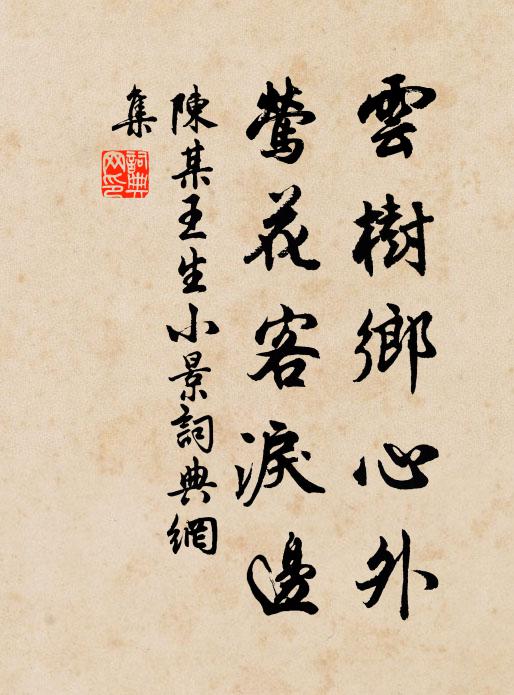 雲樹鄉心外
鶯花客淚邊
陳某王生小景詞典網
集
詞典
网印